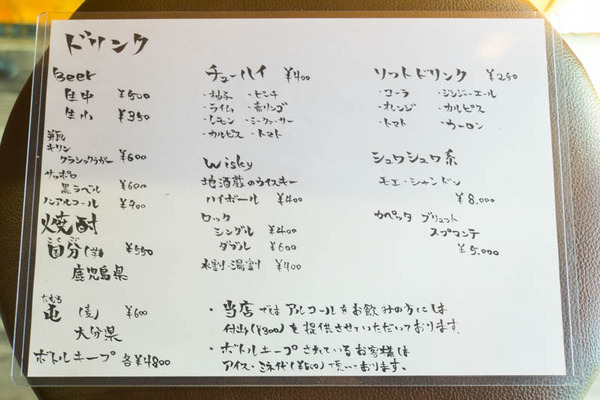 ドリンク
Beer
生中 ¥500
生小 ¥350
キリン
クラシックラガー ¥600
サッポロ
黒ラベル ¥600
ノンアルコール ¥400
焼酎
国分(芋) ¥550
鹿児島県
(麦) ¥600
大分県
ボトルキープ 各¥4800
チューハイ ¥400
・ゆず ・ピンチ
・ライム ・青リンゴ
・レモン ・シークァーサー
・カルピス ・トマト
Wisky
地酒蔵のウイスキー
ハイボール ¥400
ロック
シングル ¥400
ダブル ¥600
水割・湯割 ¥400
ソフトドリンク ¥250
・コーラ ・ジンジーエール
・オレンジ ・カルピス
・トマト ・ウーロン
シュワシュワ系
モエ・シャンドン
¥8.000
カペッタ ブリュット
スプマンテ
¥5.000
・当店ではアルコールをお飲みの方には
付出(¥300)を提供させていただいております。
・ボトルキープされているお客様は
アイス・ミネ代(¥500)頂いております。